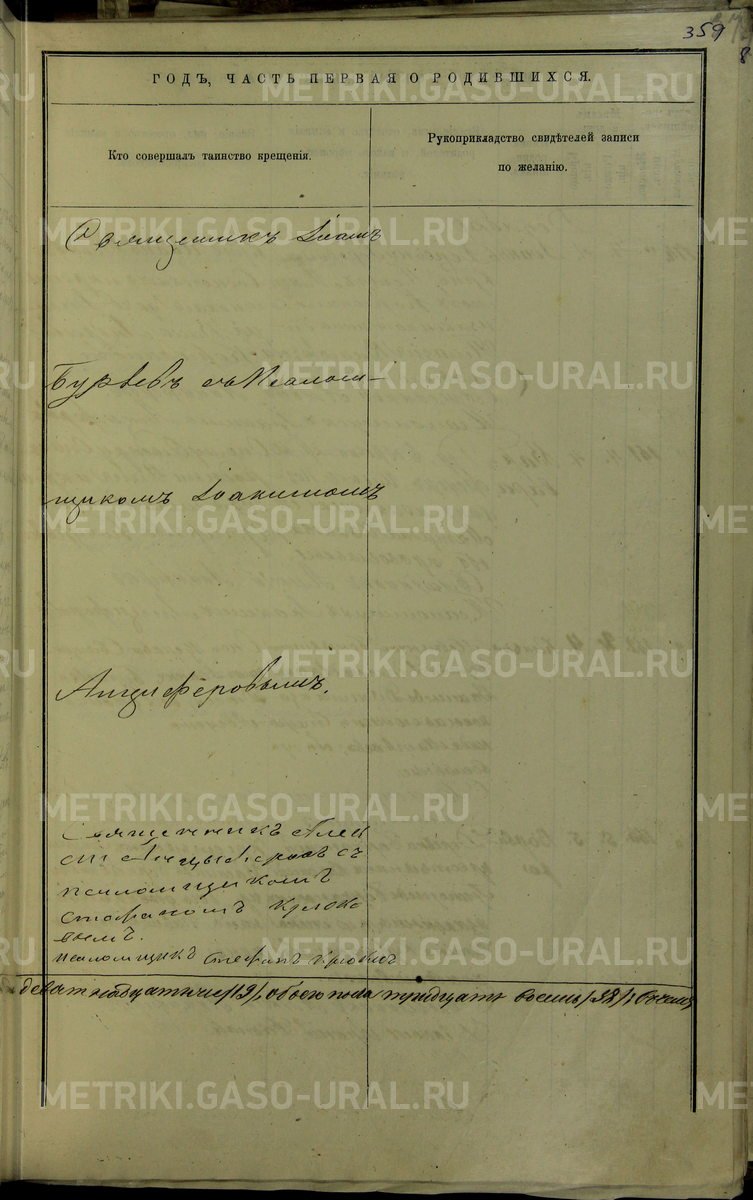 359
8
ГОДЪ, ЧАСТЬ ПЕРВАЯ О РОДИВШИХСЯ.
Кто совершалъ таинство крещенія.
Рукоприкладство свидѣтелей записи
по желанію.
Священникъ Іоаннъ
Бурлевъ съ Псалом-
щикомъ Іоакимомъ
Анциферовымъ.
Священникъ Алек
сій Анцыферовъ съ
псаломщикомъ
Стефаномъ Крюко
вымъ.
псаломщикъ Стефанъ Крюковъ
девятнадцать /19/, обоего пола тридцать восемь /38/
METRIKI.GASO-URAL.RU